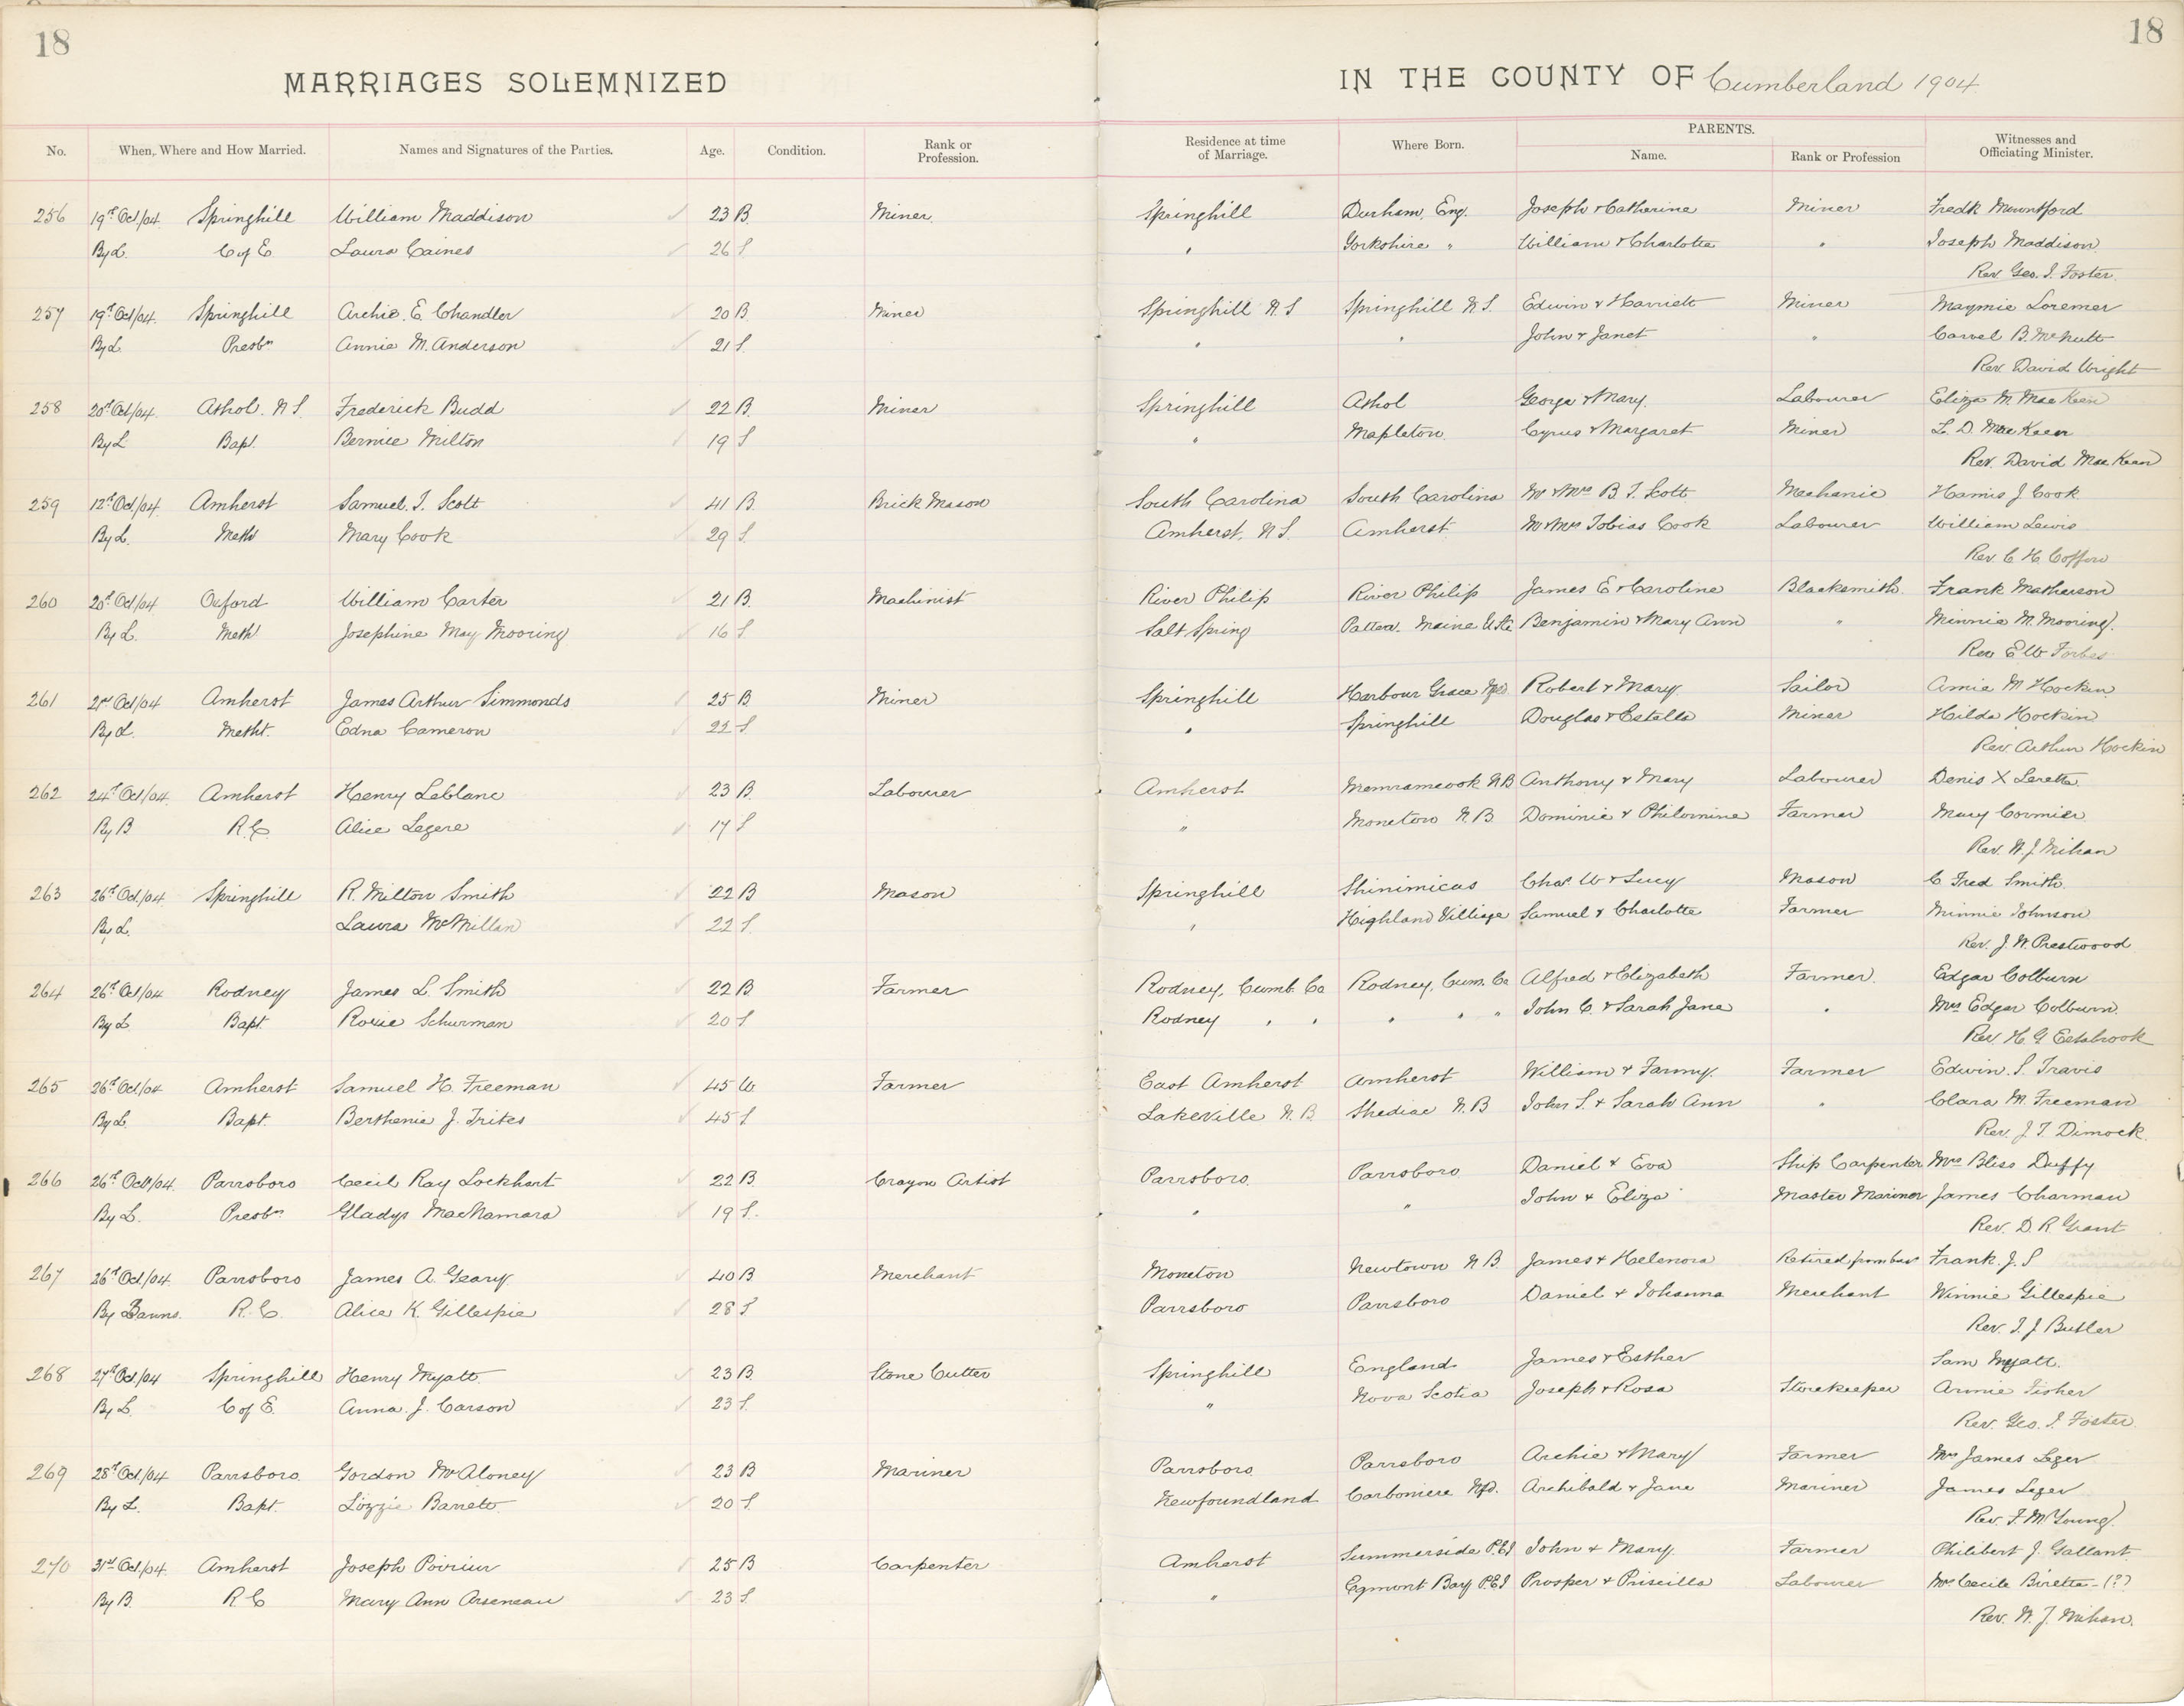 18
18
MARRIAGES SOLEMNIZED IN THE COUNTY OF Cumberland 1904
No. When, Where and How Married. Names and Signatures of the Parties. Age. Condition. Rank or Profession. Residence at time of Marriage. Where Born. PARENTS. Name. Rank or Profession Witnesses and Officiating Minister.
256 19th Oct/04. Springhill William Maddison 23 B. Miner. Springhill Durham, Eng. Joseph & Catherine Miner Fredk Mountford
By L. C of E Laura Caines 26 S. " Yorkshire " William & Charlotte " Joseph Maddison
Rev. Geo. I. Foster.
257 19th Oct/04. Springhill Archie. E. Chandler 20 B. Miner Springhill N.S Springhill N.S. Edwin & Harriett Miner Maymie Loremer
By L. Presbn Annie M. Anderson 21 S. " " John & Janet " Carvel B. McNutt
Rev. David Wright
258 20th Oct/04. Athol. N.S. Frederick Budd 22 B. Miner Springhill Athol George & Mary. Labourer Eliza M. MacKeen
By L Bapt. Bernice Milton 19 S " Mapleton. Cyrus & Margaret Miner L. D. MacKeen
Rev. David MacKeen
259 12th Oct/04. Amherst Samuel. T. Scott 41 B. Brick Mason South Carolina South Carolina Mr & Mrs B. T. Scott Mechanic J Cook
By L. Meth Mary Cook 29 S. Amherst, N.S. Amherst. Mr & Mrs Tobias Cook Labourer William Lewis
Rev. C. H.
260 20th Oct/04 Oxford William Carter 21 B. Machinist River Philip River Philip James E & Caroline Blacksmith. Frank Matheson
By L. Meth Josephine May Mooring 16 S. Salt Spring Patten. Maine Benjamin & Mary Ann " Minnie M. Mooring.
Rev E W Forbes
261 21st Oct/04 Amherst James Arthur Simmonds 25 B Miner Springhill Harbour Grace Nfld Robert & Mary. Sailor Amie M Hockin
By L. Metht. Edna Cameron 22 S " Springhill Douglas & Estella Miner Hilda Hockin
Rev. Arthur Hockin
262 24th Oct/04. Amherst Henry Leblanc 23 B. Labourer Amherst Memramcook NB Anthony & Mary Labourer Denis X Lerette.
By B R.C. Alice Legere 17 S " Moncton N.B. Dominic & Philomine Farmer Mary Cormier
Rev. W. J. Mihan
263 26th Oct./04. Springhill R. Milton Smith 22 B Mason Springhill Shinimicas Chas. W & Lucy Mason C Fred Smith.
By L. Laura McMillan 22 S. " Highland Village Samuel & Charlotte Farmer Minnie Johnson
Rev. J. W. Prestwood
264 26th Oct/04 Rodney James L. Smith 22 B. Farmer Rodney, Cumb. Co Rodney, Cum. Co Alfred & Elizabeth Farmer. Edgar Colburn
By L Bapt. Rosie Schurman 20 S Rodney " " " " " John C. & Sarah Jane " Mrs Edgar Colburn.
Rev H. G Estabrook
265 26th Oct/04 Amherst Samuel H. Freeman 45 W Farmer East Amherst Amherst William & Fanny. Farmer Edwin. S. Travis
By L. Bapt. Berthenie J. Trites 45 S. Lakeville N.B. Shediac N.B John S. & Sarah Ann " Clara M. Freeman
Rev. J. T. Dimock.
266 26th Oct/04. Parrsboro Cecil Ray Lockhart 22 B. Crayon Artist Parrsboro. Parrsboro Daniel & Eva Ship Carpenter Mrs Bliss Duffy
By L. Presbn Gladys MacNamara 19 S. " " John & Eliza Master Mariner James Charman
Rev. D. R. Grant
267 26th Oct./04. Parrsboro James A. Geary. 40 B Merchant Moncton Newtown N B. James & Helenora Retired from bus Frank. J. S
By Banns. R.C. Alice K. Gillespie 28 S Parrsboro Parrsboro Daniel & Johanna Merchant Winnie Gillespie
Rev. T. J Butler
268 27th Oct./04 Springhill Henry Myatt. 23 B. Stone Cutter Springhill England James & Esther Sam Myatt.
By L. C of E. Anna. J. Carson 23 S. " Nova Scotia Joseph & Rosa Storekeeper Annie Fisher
Rev. Geo. I. Foster
269 28th Oct./04 Parrsboro. Gordon McAloney 23 B Mariner Parrsboro. Parrsboro Archie & Mary Farmer Mrs James Leger
By L. Bapt. Lizzie Barrett 20 S. Newfoundland Carboniere Nfd. Archibald & Jane Mariner James Leger
Rev. F. M. Young.
270 31st Oct./04. Amherst Joseph Poirier 25 B Carpenter Amherst Summerside P.E.I John & Mary. Farmer Philibert J. Gallant
By B. R.C Mary Ann Arseneau 23 S. " Egmont Bay P.E.I Prosper & Priscilla Labourer Mrs Cecile Birette - (?)
Rev. W. J. Mihan.